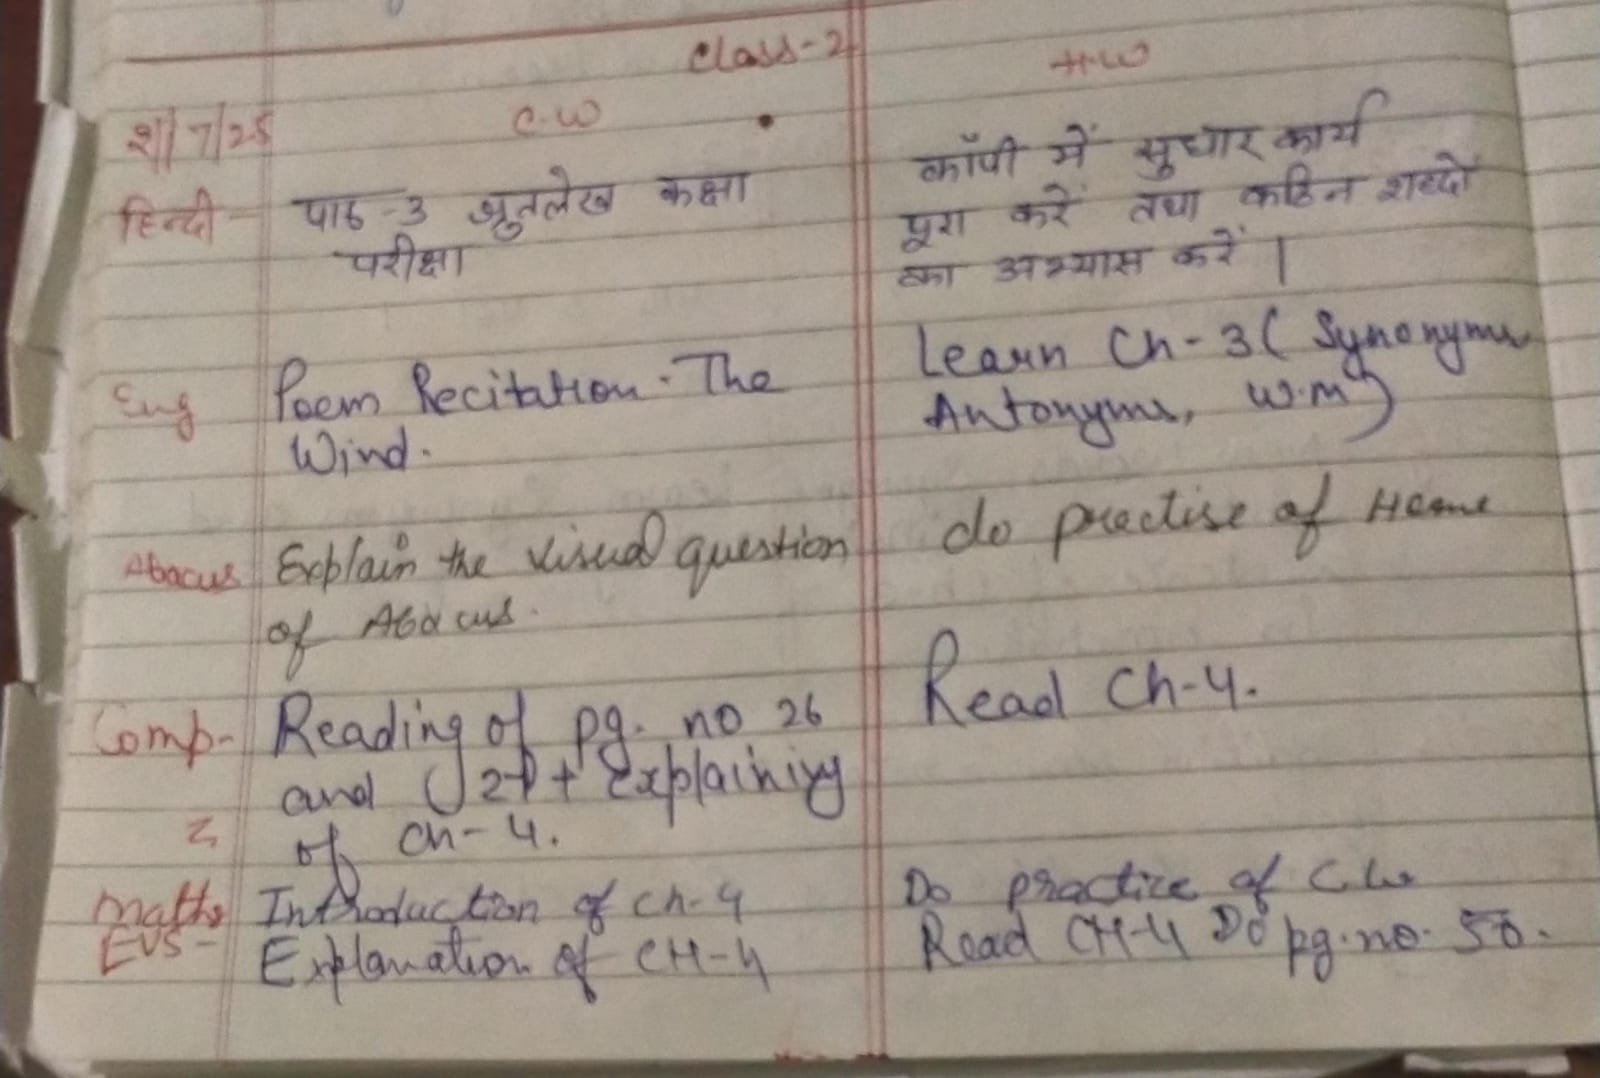 Class-2
C.W
H.W
/7/25
हिन्दी- पाठ-3 श्रुतलेख कक्षा
परीक्षा
कॉपी में सुधार कार्य
पूरा करें तथा कठिन शब्दो
का अभ्यास करें ।
Eng Poem Recitation - The
Wind.
Learn Ch-3 ( Synonyms
Antonyms, W.M)
Abacus Explain the visual question
of Abacus.
do practise of Home
Comp- Reading of pg. no 26
and 27 + Explaining
of Ch-4.
Read Ch-4.
Maths Introduction of Ch-4
Do practice of C.W
EVS- Explanation of CH-4
Read CH-4 Do pg.no. 50.